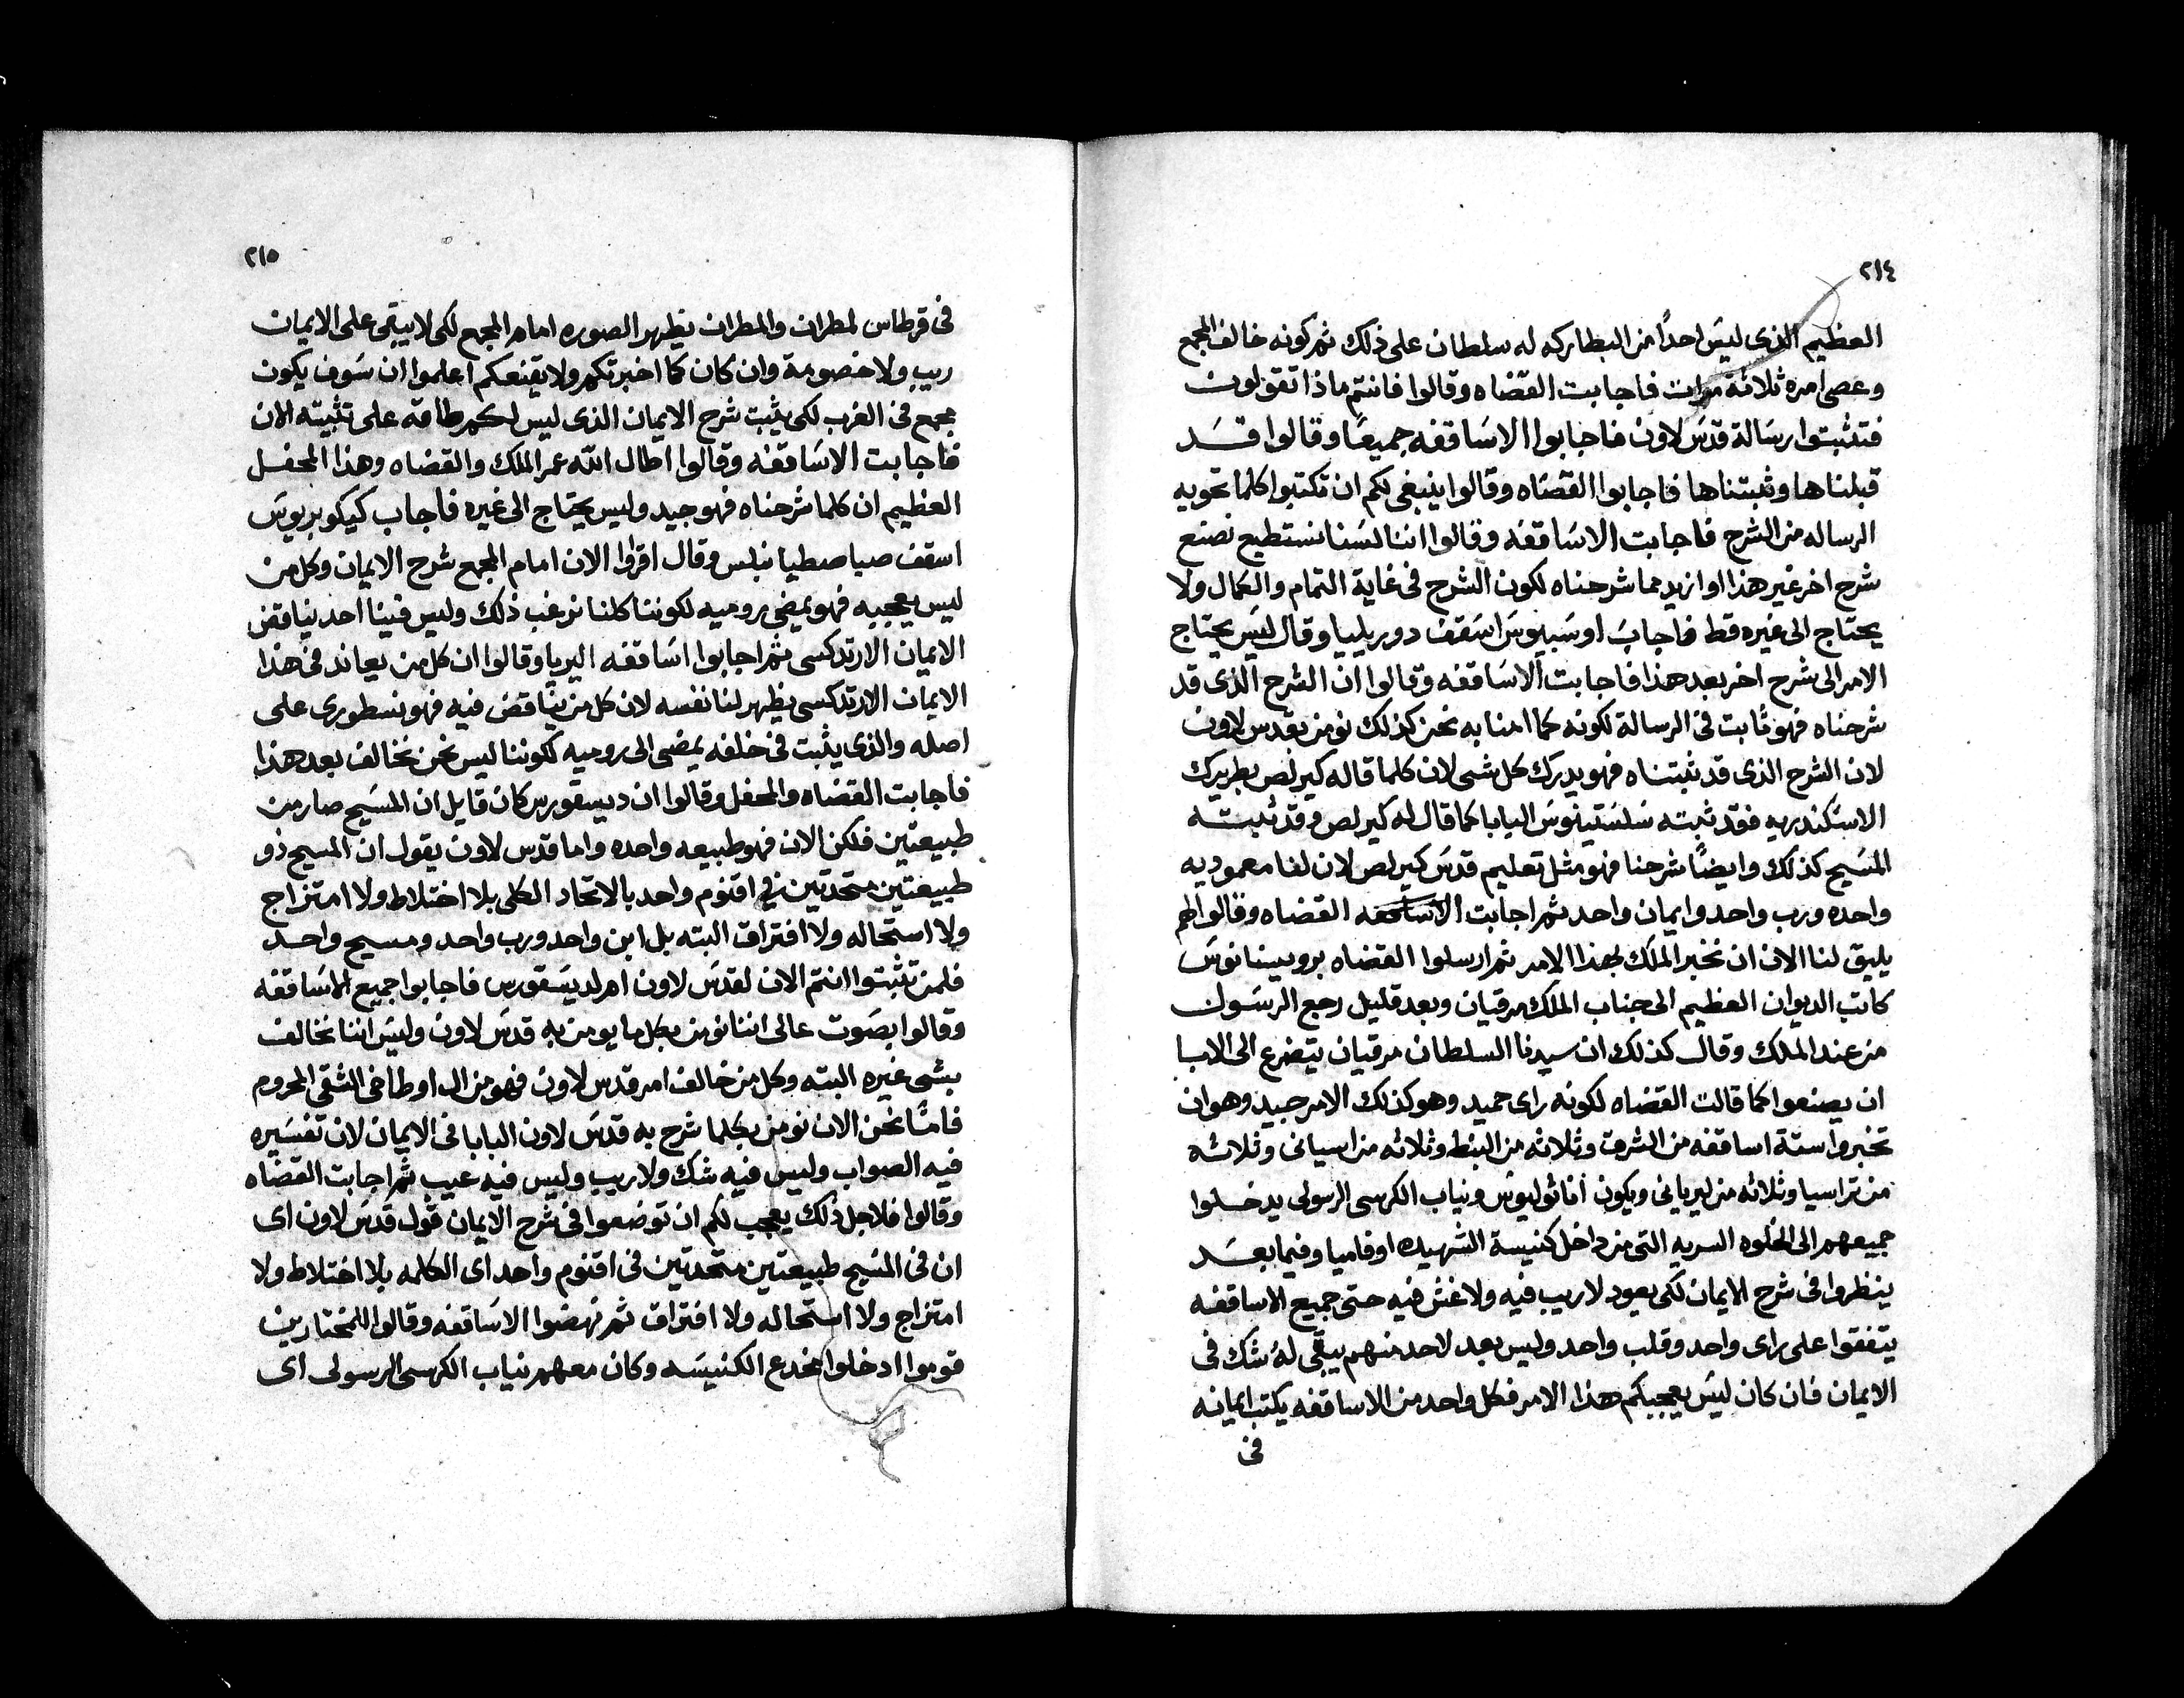 ٢١٤
العظيم الذى ليس احدًا من البطاركه له سلطان على ذلك ثم كونه خالف المجمع
وعصى امره ثلاثة مرات فاجابت القضاه وقالوا فانتم ماذا تقولون
فتثبتوا رسالة قدس لاون فاجابوا الاساقفه جميعًا وقالوا قد
قبلناها وثبتناها فاجابوا القضاه وقالوا ينبغى لكم ان تكتبوا كلما تحويه
الرساله من الشرح فاجابت الاساقفه وقالوا اننا لسنا نستطيع نصنع
شرح اخر غير هذا او ازيد مما شرحناه لكون الشرح فى غاية التمام والكمال ولا
يحتاج الى غيره قط فاجاب اوسبيوس اسقف دوريليا وقال ليس يحتاج
الامر الى شرح اخر بعد هذا فاجابت الاساقفه وقالوا ان الشرح الذى قد
شرحناه فهو ثابت فى الرسالة لكونه كما امنا به نحن كذلك نومن بقدس لاون
لان الشرح الذى قد ثبتناه فهو يدرك كل شى لان كلما قاله كيرلص بطريرك
الاسكندريه فقد ثبته سلستينوس البابا كما قال له كيرلص وقد ثبته
المسيح كذلك وايضًا شرحنا فهو مثل تعليم قدس كيرلص لان لنا معموديه
واحده ورب واحد وايمان واحد ثم اجابت الاساقفه القضاه وقالوا لهم
يليق لنا الان ان نخبر الملك بهذا الامر ثم ارسلوا القضاه برويبنيانوس
كاتب الديوان العظيم الى جناب الملك مرقيان وبعد قليل رجع الرسول
من عند الملك وقال كذلك ان سيدنا السلطان مرقيان يتضرع الى الابا
ان يصنعوا كما قالت القضاه لكونه راى حميد وهو كذلك الامر جيد وهو ان
تخبروا ستة اساقفه من الشرق وثلاثه من البنط وثلاثه من اسيانى وثلاثه
من تراسيا وثلاثه من ليريانى ويكون أناثوليوس ونياب الكرسى الرسولى يدخلوا
جميعهم الى الخلوه السريه التى من داخل كنيسة الشهيده اوفاميا وفيما بعد
ينظروا فى شرح الايمان لكى يعود لا ريب فيه ولا غش فيه حتى جميع الاساقفه
يتفقوا على راى واحد وقلب واحد وليس بعد لاحد منهم يبقى له شك فى
الايمان فان كان ليس يعجبكم هذا الامر فكل واحد من الاساقفه يكتب ايمانه
فى
٢١٥
فى قرطاس لمطران والمطران يظهر الصوره امام المجمع لكى لا يبقى على الايمان
ريب ولا خصومة وان كان كما اخبرتكم ولا يقنعكم اعلموا ان سوف يكون
مجمع فى الغرب لكى يثبت شرح الايمان الذى ليس لكم طاقه على تثبيته الان
فاجابت الاساقفه وقالوا اطال الله عمر الملك والقضاه وهذا المحفل
العظيم ان كلما شرحناه فهو جيد وليس يحتاج الى غيره فاجاب كيكوبريوس
اسقف صباصطيانبلس وقال اقروا الان امام المجمع شرح الايمان وكل من
ليس يعجبه فهو يمضى روميه لكوننا كلنا نرغب ذلك وليس فينا احد يناقض
الايمان الارتدكسى ثم اجابوا اساقفه اليريا وقالوا ان كل من يعاند فى هذا
الايمان الارتدكسى يظهر لنا نفسه لان كل من يناقض فيه فهو نسطورى على
اصله والذى يثبت فى خلفه يمضى الى روميه لكوننا ليس نحن نخالف بعد هذا
فاجابت القضاه والمحفل وقالوا ان ديسقورس كان قايل ان المسيح صار من
طبيعتين فلكن الان فهو طبيعه واحده واما قدس لاون يقول ان المسيح ذو
طبيعتين متحدتين فى اقنوم واحد بالاتحاد الكلى بلا اختلاط ولا امتزاج
ولا استحاله ولا افتراق البته بل ابن واحد ورب واحد ومسيح واحد
فلمن تثبتوا انتم الان لقدس لاون ام لديسقورس فاجابوا جميع الاساقفه
وقالوا بصوت عالى اننا نومن بكل ما يومن به قدس لاون وليس اننا نخالف
بشى غيره البته وكل من خالف امر قدس لاون فهو من ال اوطاخى الشقى المحروم
فامّا نحن الان نومن بكلما شرح به قدس لاون البابا فى الايمان لان تفسيره
فيه الصواب وليس فيه شك ولا ريب وليس فيه عيب ثم اجابت القضاه
وقالوا فلاجل ذلك يعجب لكم ان توضعوا فى شرح الايمان قول قدس لاون اى
ان فى المسيح طبيعتين متحدتين فى اقنوم واحد اى الكلمه بلا اختلاط ولا
امتزاج ولا استحاله ولا افتراق ثم نهضوا الاساقفه وقالوا للمختارين
قوموا ادخلوا مخدع الكنيسه وكان معهم نياب الكرسى الرسولى اى